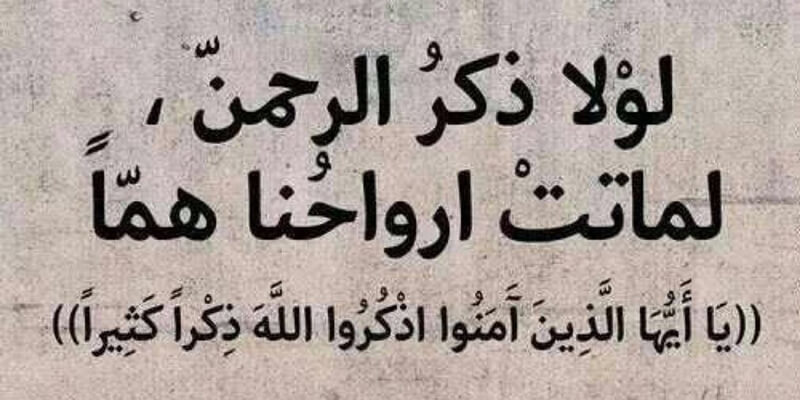 لوْلا ذكرُ الرحمنّ ،
لماتتْ ارواحُنا همّاً
((يَا أَيُّهَا الَّذِينَ آَمَنُوا اذْكُرُوا اللَّهَ ذِكْراً كَثِيراً))